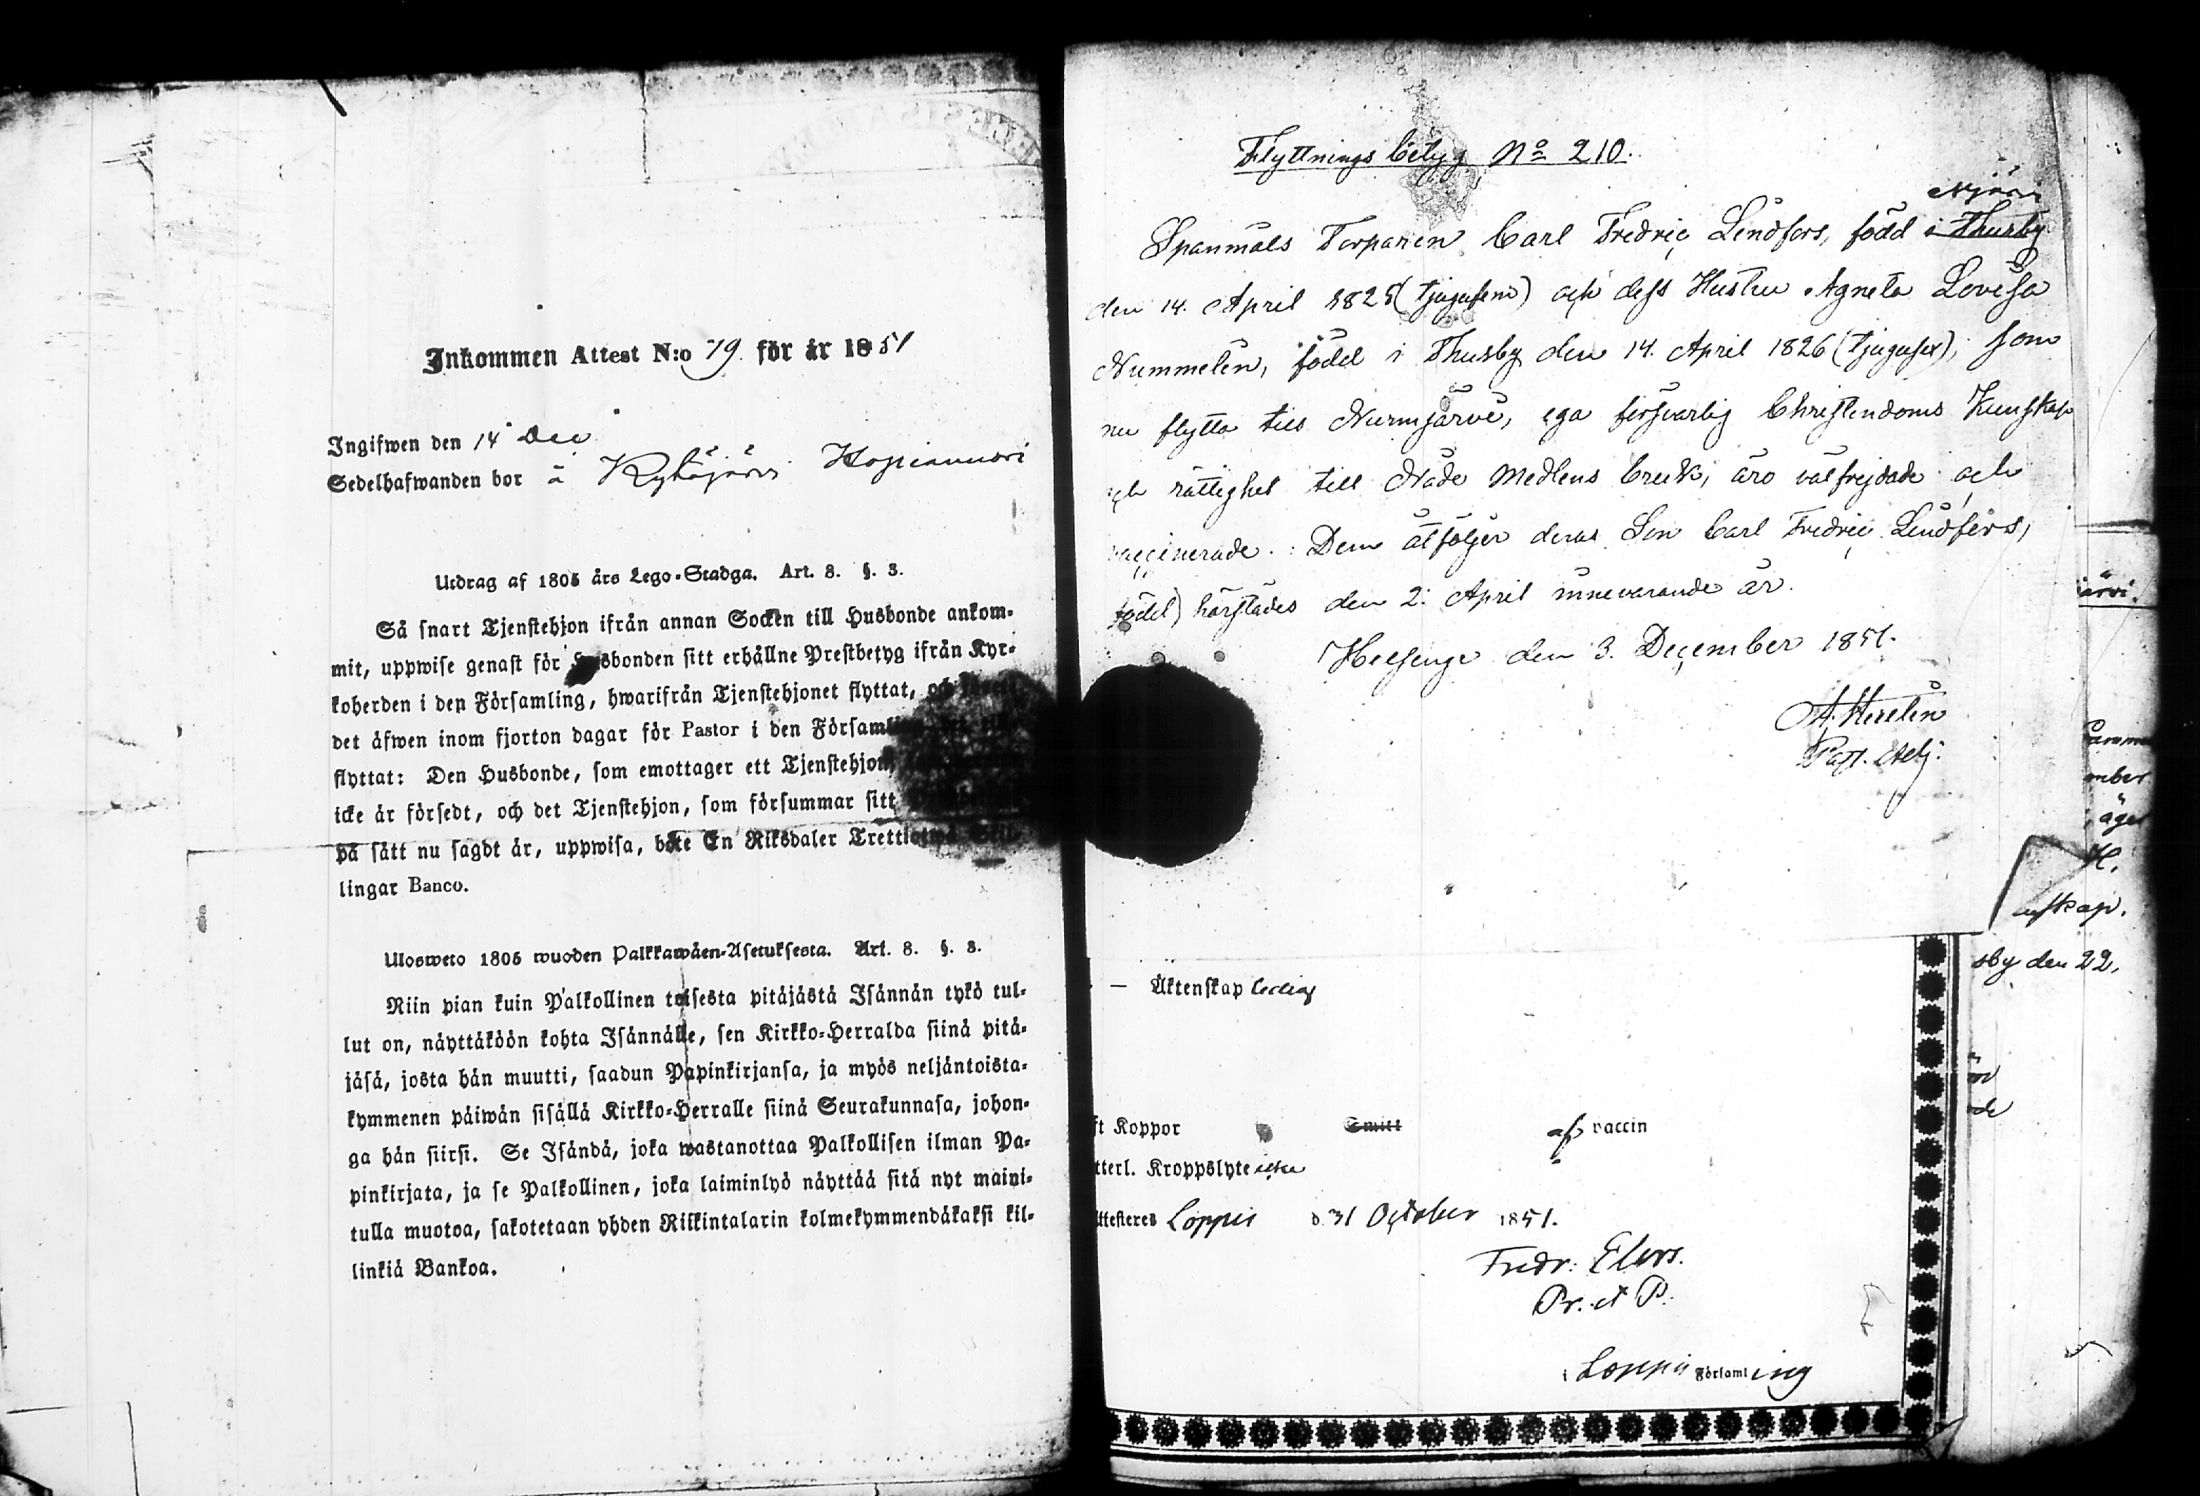 Inkommen Attest N:o 79 för år 1851
Ingifwen den 14 Dec
Sedelhafwanden bor å Kytäjärvi
Utdrag af 1805 års Lego-Stadga. Art. 8. §. 3.
Så snart Tjenstehjon ifrån annan Socken till Husbonde ankom-
mit, uppwise genast för Husbonden sitt erhållne Prestbetyg ifrån Kyr-
koherden i den Församling, hwarifrån Tjenstehjonet flyttat, och
det äfwen inom fjorton dagar för Pastor i den Församl
flyttat: Den Husbonde, som emottager ett Tjenstehjon,
icke är försedt, och det Tjenstehjon, som försummar sitt
på sätt nu sagdt är, uppwisa, böte En Riksdaler Trettiotwå Skil-
lingar Banco.
Uloswето 1805 wuoden Palkkawäen-Asetuksesta. Art. 8. §. 3.
Niin pian kuin Palkollinen toisesta pitäjästä Isännän tykö tul-
lut on, näyttäköön kohta Isännälle, sen Kirkko-Herralda siinä pitä-
jäsä, josta hän muutti, saadun Papinkirjansa, ja myös neljäntoista-
kymmenen päiwän sisällä Kirkko-Herralle siinä Seurakunnasa, johon-
ga hän siirsi. Se Isändä, joka wastanottaa Palkollisen ilman Pa-
pinkirjata, ja se Palkollinen, joka laiminlyö näyttää sitä nyt maini-
tulla muotoa, sakotetaan yhden Riikintalarin kolmekymmendäkaksi kil-
linkiä Bankoa.
Flyttnings betyg No 210.
Njärvi
Spanmåls Torparen Carl Fredric Lindfors, född i Thusby
den 14. April 1825 (tjugufem) och dess Hustru Agneta Lovisa
Nummelin, född i Thusby den 14. April 1826 (tjugusex), som
nu flytta till Nurmjärvi, ega försvarlig Christendoms Kunskap
och rättighet till Nåde Medlens bruk, äro välfrejdade och
vaccinerade. Dem åtföljer deras Son Carl Fredric Lindfors,
född härstädes den 2. April innevarande år.
Helsinge den 3. December 1851.
Past. Adj.
— Äktenskap ledig
ft Koppor Smitt af vaccin
tterl. Kroppslyte icke
ttesteres Loppis d. 31 October 1851.
Fredr: Elers.
Pr. et P.
i Loppis Församling
järvi.
mber
äger
nskap.
sby den 22.